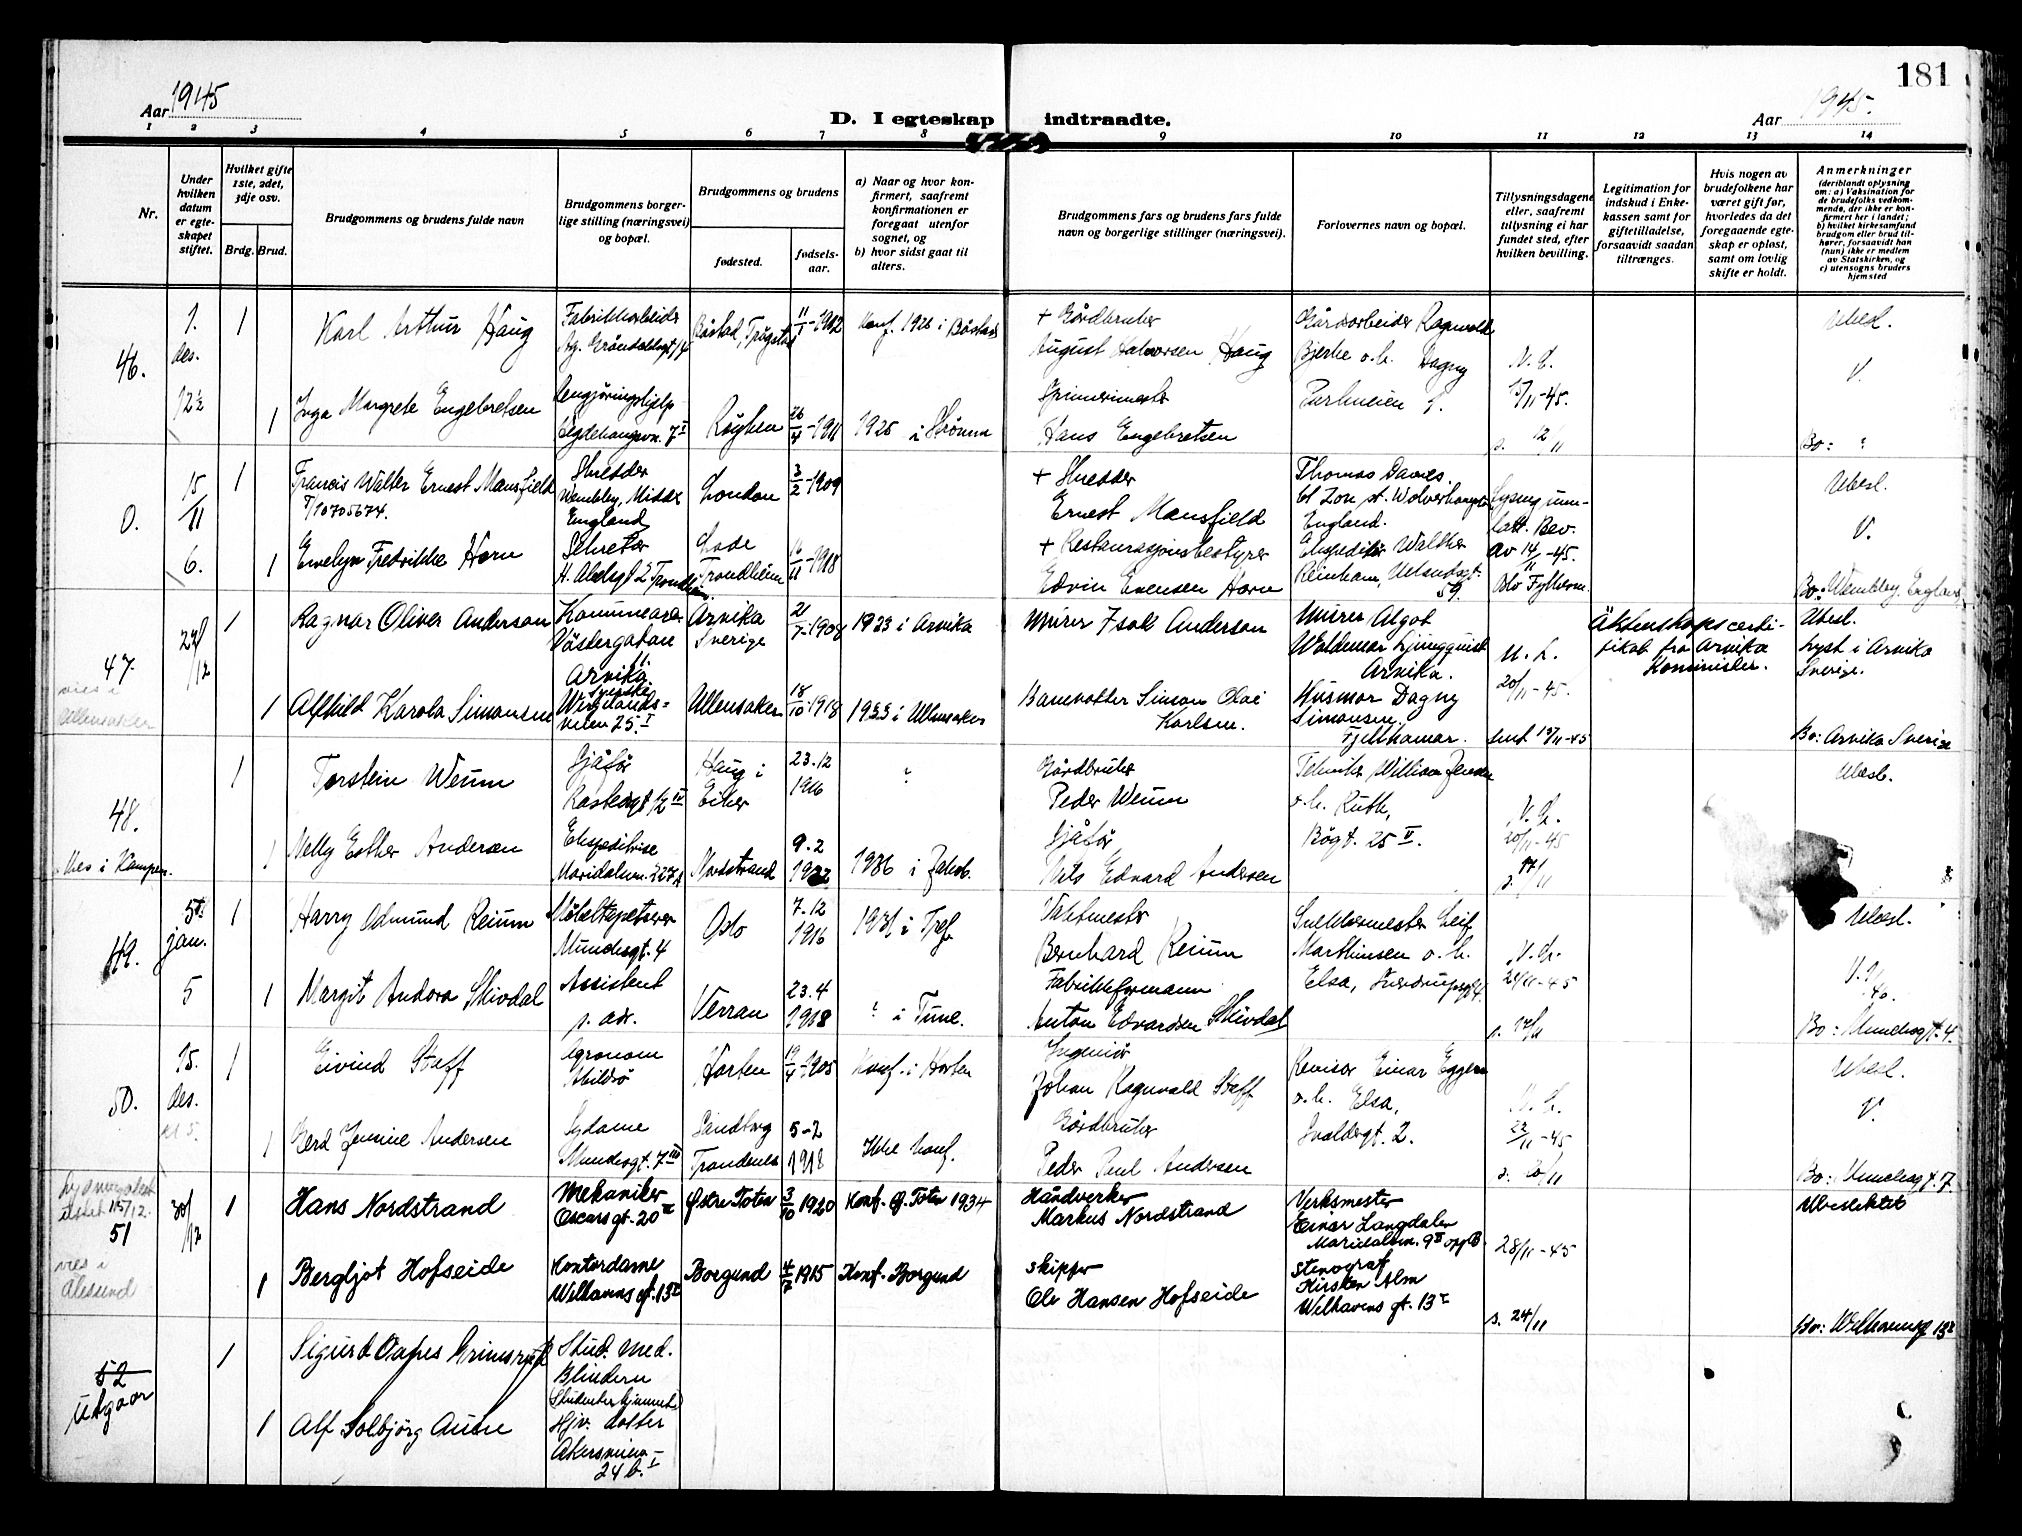 181
Aar 1945
D. I egteskap indtraadte.
Aar 1945.
1 2 3 4 5 6 7 8 9 10 11 12 13 14
Nr.
Under hvilken datum er egteskapet stiftet.
Hvilket gifte 1ste, 2det, 3dje osv.
Brdg. Brud.
Brudgommens og brudens fulde navn
Brudgommens borgerlige stilling (næringsvei) og bopæl.
Brudgommens og brudens
fødested.
fødselsaar.
a) Naar og hvor konfirmert, saafremt konfirmationen er foregaat utenfor sognet, og
b) hvor sidst gaat til alters.
Brudgommens fars og brudens fars fulde navn og borgerlige stillinger (næringsvei).
Forlovernes navn og bopæl.
Tillysningsdagene eller, saafremt tillysning ei har fundet sted, efter hvilken bevilling.
Legitimation for indskud i Enkekassen samt for giftetilladelse, forsaavidt saadan tiltrænges.
Hvis nogen av brudefolkene har været gift før, hvorledes da det foregaaende egteskap er opløst, samt om lovlig skifte er holdt.
Anmerkninger
(deriblandt oplysning om: a) Vaksination for de brudefolks vedkommende, der ikke er konfirmert her i landet; b) hvilket kirkesamfund brudgom eller brud tilhører, forsaavidt han (hun) ikke er medlem av Statskirken, og c) utensogns bruders hjemsted
46.
1. des. 12½
1
Karl Arthur Haug
Fabrikkarbeider
Båstad, Trøgstad
11/1-1912
Konf. 1926 i Båstad
+ Gårdbruker
August Halvorsen Haug
Gårdsarbeider Ragnvald
Bjerke o.h. Dagny
15/11-45.
Ubesl.
V.
1
Inga Margrete Engebretsen
Rengjøringshjelp
Røyken
26/4-1911
1926 i Strømm
Spinnerimester
Hans Engebretsen
s. 12/11
Bo: "
0.
15/11
6.
1
Francis Walter Ernest Mansfield
T/10705674.
Skredder
Wembley, Middx
England
London
3/2-1909
+ Skredder
Ernest Mansfield
Thomas Davies.
England.
Lysing unnlatt. Bev.
av 14/11-45.
Oslo Fylkesm.
Ubesl.
V.
1
Evelyn Fredrikke Horn
Sekretær
H. Abelsgt 2 Trondheim
Lade
Trondheim
16/11-1918
+ Restaurasjonsbestyrer
Edvin Evensen Horn
Ekspeditør Walther
Reinham, Uelandsgt. 59.
Bo: Wembley, England
47.
vies i
Ullensaker
29/12
1
Ragnar Oliver Anderson
Västergatan 11.
Arvika.
Sverige
Arvika
Sverige
21/7-1908
1923 i Arvika
Murer Isak Anderson
Murer Algot
Waldemar Ljungquist
Arvika.
N. L.
20/11-45.
Äktenskapscertifikat fra Arvika
Kominister.
Ubesl.
Lyst i Arvika
Sverige.
1
Alfhild Karola Simonsen
Wergelandsveien 25.I
Ullensaker
18/10-1918
1933 i Ullensaker
Banevokter Simon Olai
Karlsen.
Husmor Dagny
Simonsen,
Fjellhamar.
Bo: Arvika Sverige
48.
Vies i Kampen.
1
Torstein Weum
Sjåfør
Haug i
Eiker
23.12
1916
"
Gårdbruker
Peder Weum
Tekniker William Jensen
o.h. Ruth,
Bøgt. 25 II.
N. L.
20/11-45
Ubesl.
1
Nelly Esther Andersen
Ekspeditrise
Maridalsvn. 227A
Nordstrand
9.2
1922
1936 i Jakob.
Sjåfør
Nils Edvard Andersen
s. 17/11
49.
5te
jan.
5
1
Harry Edmund Reium
Møbeltapetserer
Munchsgt. 4
Oslo
7.12
1916
1931 i Tref.
Vaktmester
Bernhard Reium
Snekkermester Leif
Marthinsen o.h.
Elsa,
N. L.
21/11-45
Ubesl.
1
Margit Andora Skivdal
Assistent
s. adr.
Verran
23.4
1918
" i Tune.
Fabrikkformann
Anton Edvardsen Skivdal
s. 17/11
Bo: Munchsgt. 4.
50.
15.
des.
kl 5.
1
Eivind Steff
Agronom
Horten
19/4-1905
Konf. i Horten
Ingeniør
Johan Ragnvald Steff
Revisor Einar Eggen
o.h. Elsa,
N. L.
22/11-45
Ubesl.
V.
1
Gerd Jennie Andersen
Sydame
Munchsgt. 7 III
Sandtorg
Trondenes
5-2
1918
Ikke konf.
Gårdbruker
Peder Paul Andersen
Ivaldsgt. 2.
s. 20/11
Bo: Munchsgt. 7.
51
vies i
Ålesund
30/12
1
Hans Nordstrand
Mekaniker
Oscarsgt. 20
Østre Toten
3/10 1920
Konf. Ø. Toten 1934
Håndverker
Markus Nordstrand
Verksmester
Einar Langdalen
Maridalsvn. 9
28/11-45
Ubeslektet
1
Bergljot Hofseide
Kontordame
Welhavens gt. 13
Borgund
4/7 1915
Konf. Borgund
Skipper
Ole Hansen Hofseide
Stenograf
Kirsten Alm
Welhavens gt. 13
s. 24/11
Bo: Welhavensgt 13
52
Utgaar
1
Sigurd
Stud. med.
Blindern
1
Alf Solbjørg Aune
Hjv. datter
Akersveien
24 b. I